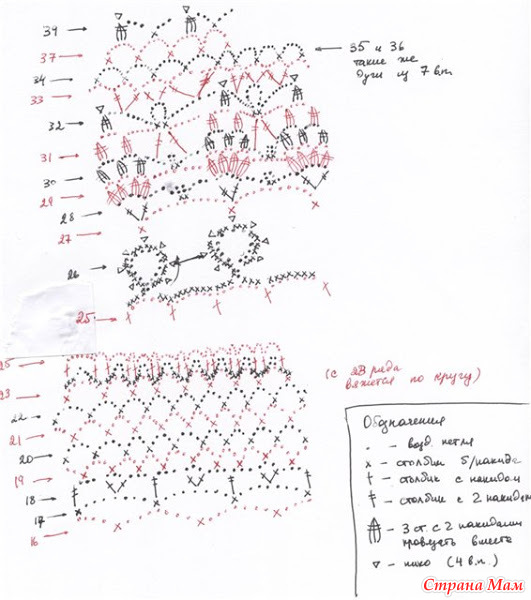 39
37
34
33
32
31
30
29
28
27
26
25
35 и 36
такие же
дуги из 7 в.п.
25
23
22
21
20
19
18
17
16
(с 23 ряда
вяжется по кругу)
Обозначения
- возд. петля
x - столбик б/накида
- столбик с накидом
- столбик с 2 накидом
- 3 ст. с 2 накидами
провязать вместе
- пико (4 в.п.)
Страна Мам